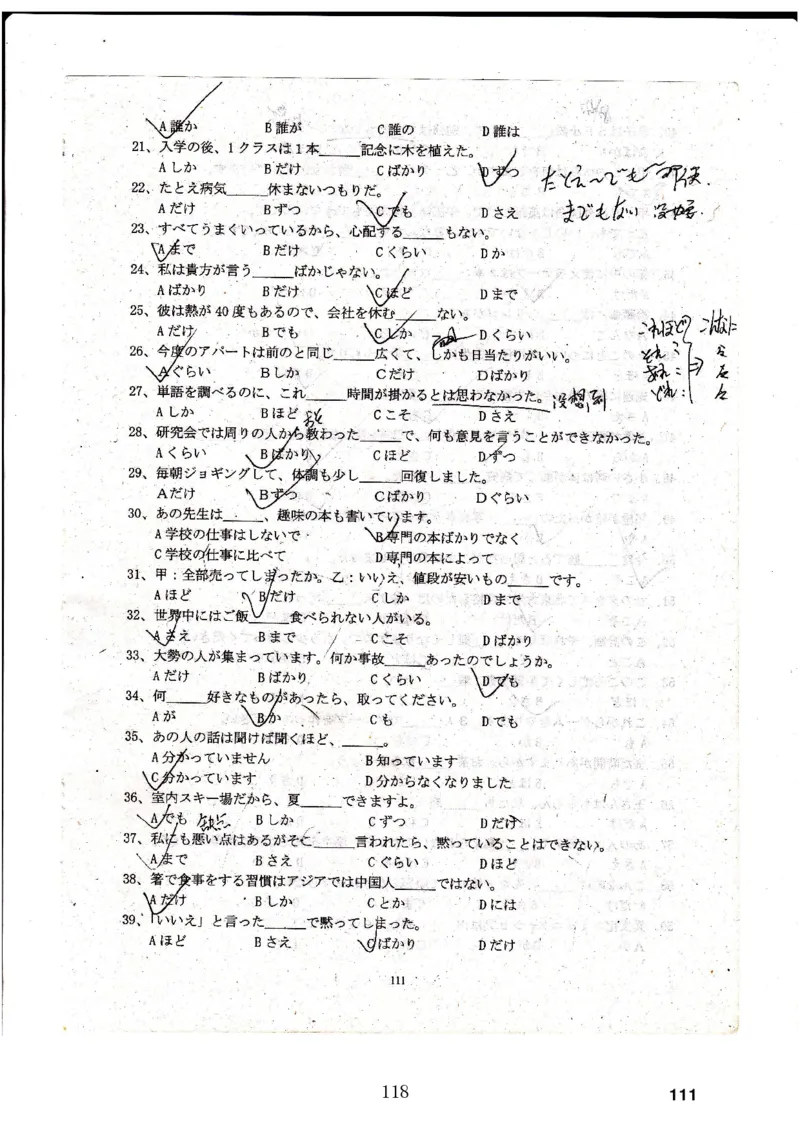 A誰か B誰が C誰の D誰は
21、入学の後、1クラスは1本_____記念に木を植えた。
Aしか Bだけ Cばかり Dずつ
たとえ〜でも〜
22、たとえ病気_____休まないつもりだ。
Aだけ Bずつ Cでも Dさえ
までもない 没必要.
23、すべてうまくいっているから、心配する_____もない。
Aまで Bだけ Cくらい Dか
24、私は貴方が言う_____ばかじゃない。
Aばかり Bだけ Cほど Dまで
25、彼は熱が40度もあるので、会社を休む_____ない。
Aだけ Bでも Cしか Dくらい
これほど こんなに
それ:
あれ:
どれ:
26、今度のアパートは前のと同じ_____広くて、しかも日当たりがいい。
Aぐらい Bしか Cだけ Dばかり
27、単語を調べるのに、これ_____時間が掛かるとは思わなかった。 没想到
Aしか Bほど Cこそ Dさえ
28、研究会では周りの人から教わった_____で、何も意見を言うことができなかった。
Aくらい Bばかり Cほど Dずつ
29、毎朝ジョギングして、体調も少し_____回復しました。
Aだけ Bずつ Cばかり Dぐらい
30、あの先生は_____、趣味の本も書いています。
A学校の仕事はしないで B専門の本ばかりでなく
C学校の仕事に比べて D専門の本によって
31、甲：全部売ってしまったか。乙：いいえ、値段が安いもの_____です。
Aほど Bだけ Cしか Dまで
32、世界中にはご飯_____食べられない人がいる。
Aさえ Bまで Cこそ Dばかり
33、大勢の人が集まっています。何か事故_____あったのでしょうか。
Aだけ Bばかり Cくらい Dでも
34、何_____好きなものがあったら、取ってください。
Aが Bか Cも Dでも
35、あの人の話は聞けば聞くほど、_____。
A分かっていません B知っています
C分かっています D分からなくなりました
36、室内スキー場だから、夏_____できますよ。
Aでも Bしか Cずつ Dだけ
缺点
37、私にも悪い点はあるがそこ_____言われたら、黙っていることはできない。
Aまで Bさえ Cぐらい Dほど
38、箸で食事をする習慣はアジアでは中国人_____ではない。
Aだけ Bしか Cとか Dには
39、「いいえ」と言った_____で黙ってしまった。
Aほど Bさえ Cばかり Dだけ
111
118
111